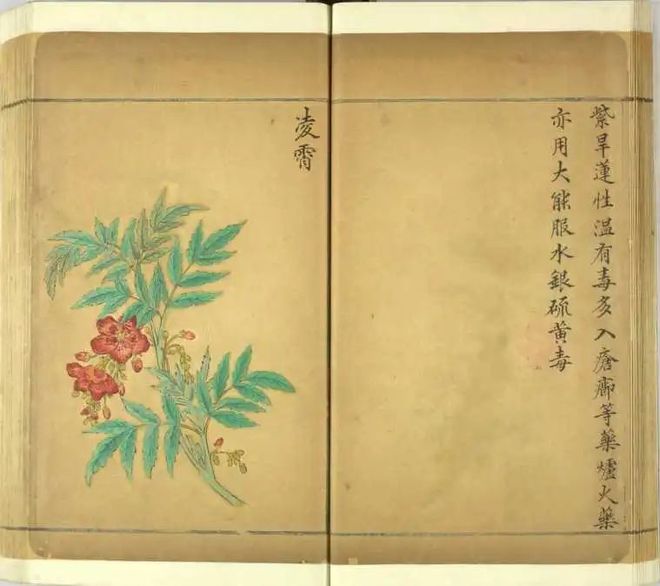 紫旱蓮性溫有毒多入瘡癤等藥爐火藥
亦用大能服水銀硫黃毒
凌霄